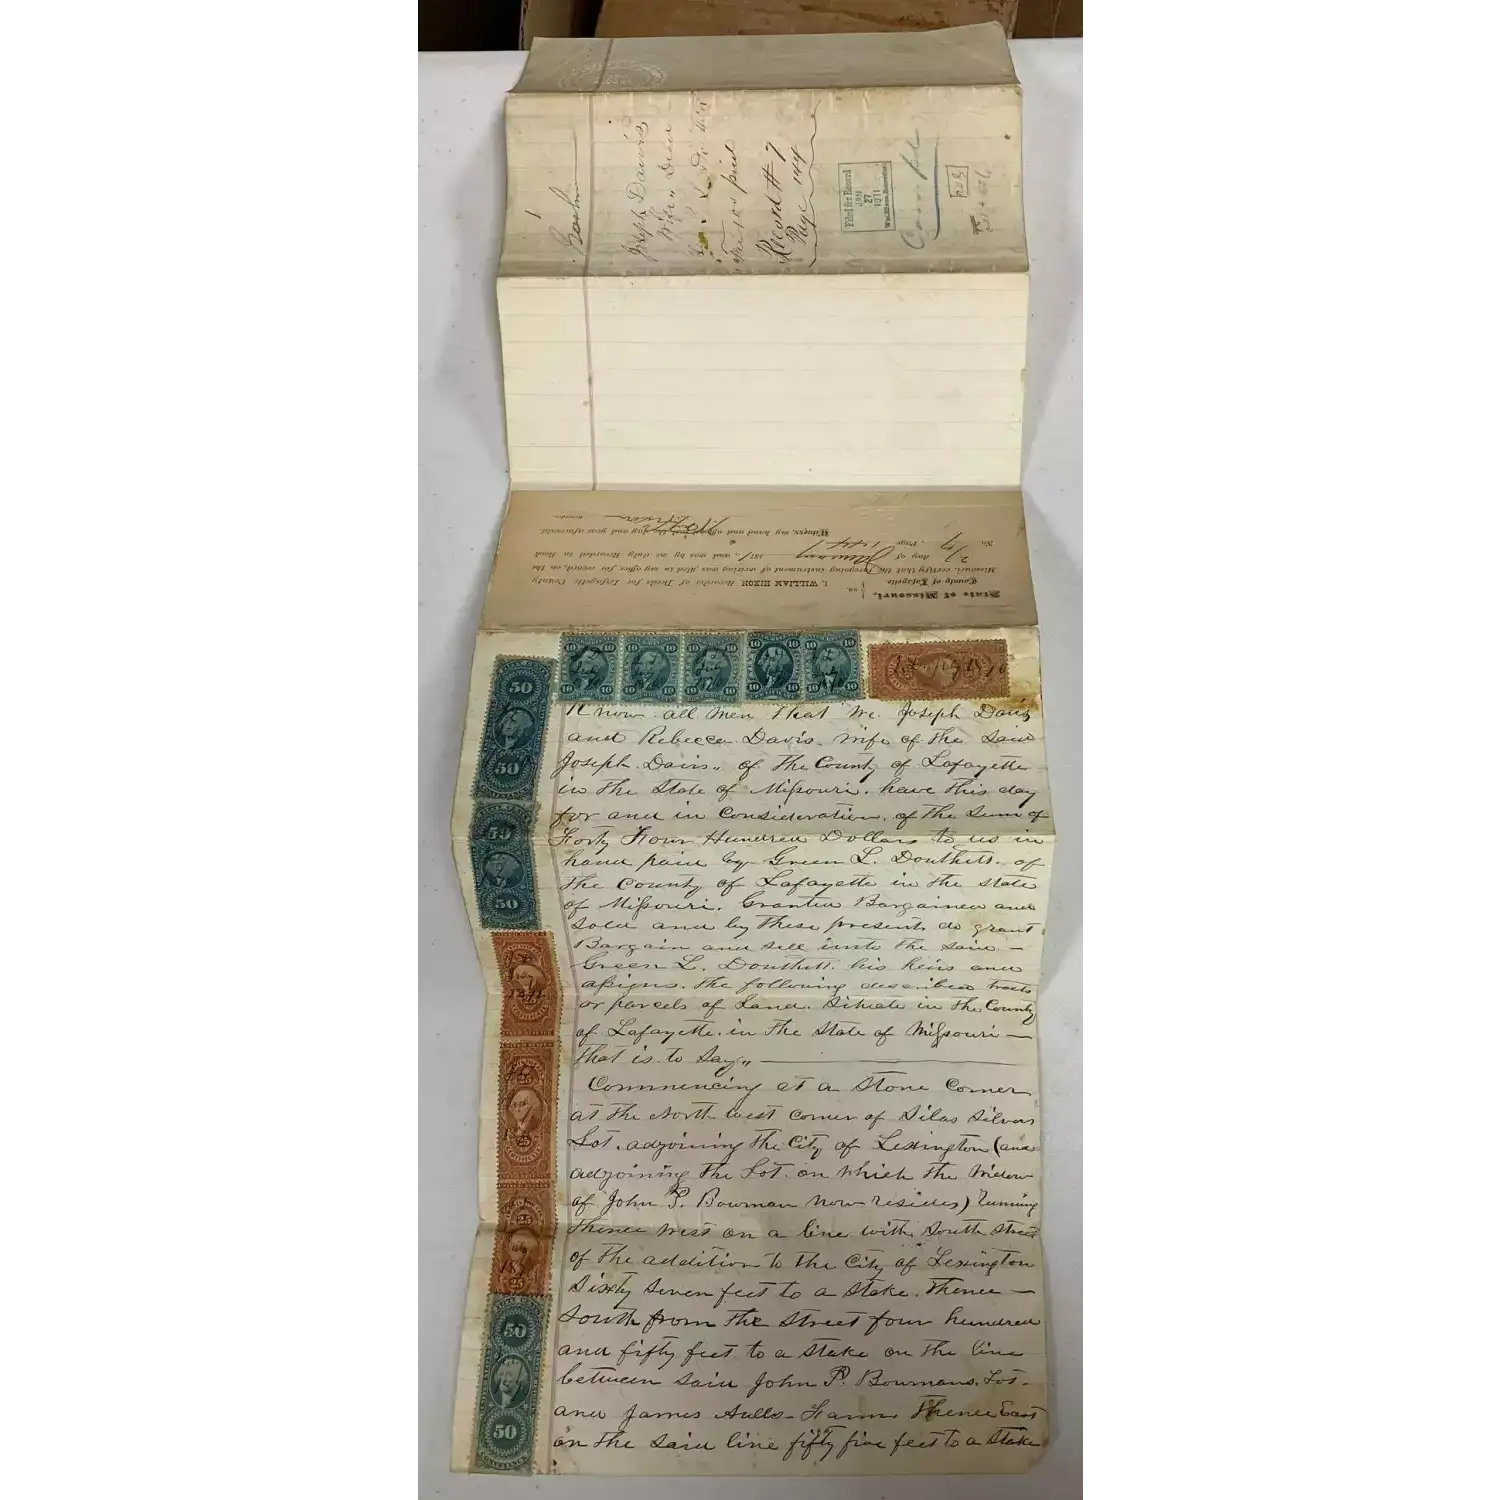 Joseph Davis
Wife Deed
Fee 1.00 paid
Record # 7
Page 144
Filed for Record
JAN
27
1871
Wm. Hixon, Recorder
State of Missouri,
County of Lafayette
} ss.
I, WILLIAM HIXON Recorder of Deeds for Lafayette County
Missouri, certify that the foregoing instrument of writing was filed in my office for record, on the
27 day of January 1871, and was by me duly Recorded in Book
No. 7, Page 144
Witness, my hand and official the day and year aforesaid.
Wm Hixon
Recorder
10 10 10 10 10 10 10 10 10 10
10 10 10 10 10 10 10 10 10 10
50
50
50
50
25
25
25
25
50
50
CONVEYANCE
Know all Men that We Joseph Davis
and Rebecca Davis. Wife of the said
Joseph Davis,, of the County of Lafayette
in the State of Missouri. have this day
for and in Consideration. of the Sum of
Forty Four Hundred Dollars to us in
hand paid by Green L. Douthitt. of
the County of Lafayette in the State
of Missouri. Granted Bargained and
Sold and by these presents do grant
Bargain and sell unto the said —
Green L. Douthitt. his heirs and
assigns. the following described tracts
or parcels of Land. Situate in the County
of Lafayette. in the State of Missouri —
that is to Say,, —
Commencing at a Stone Corner
at the North West Corner of Silas Silvers
Lot. adjoining the City of Lexington (and
adjoining the Lot. on which the Widow
of John P. Bowman now resides) running
thence West on a line with South Street
of the addition to the City of Lexington
Sixty Seven feet to a Stake. Thence —
South from the Street four hundred
and fifty feet to a Stake on the line
between said John P. Bowmans. Lot-
and James Aulls- Farm Thence East
on the said line fifty five feet to a Stake